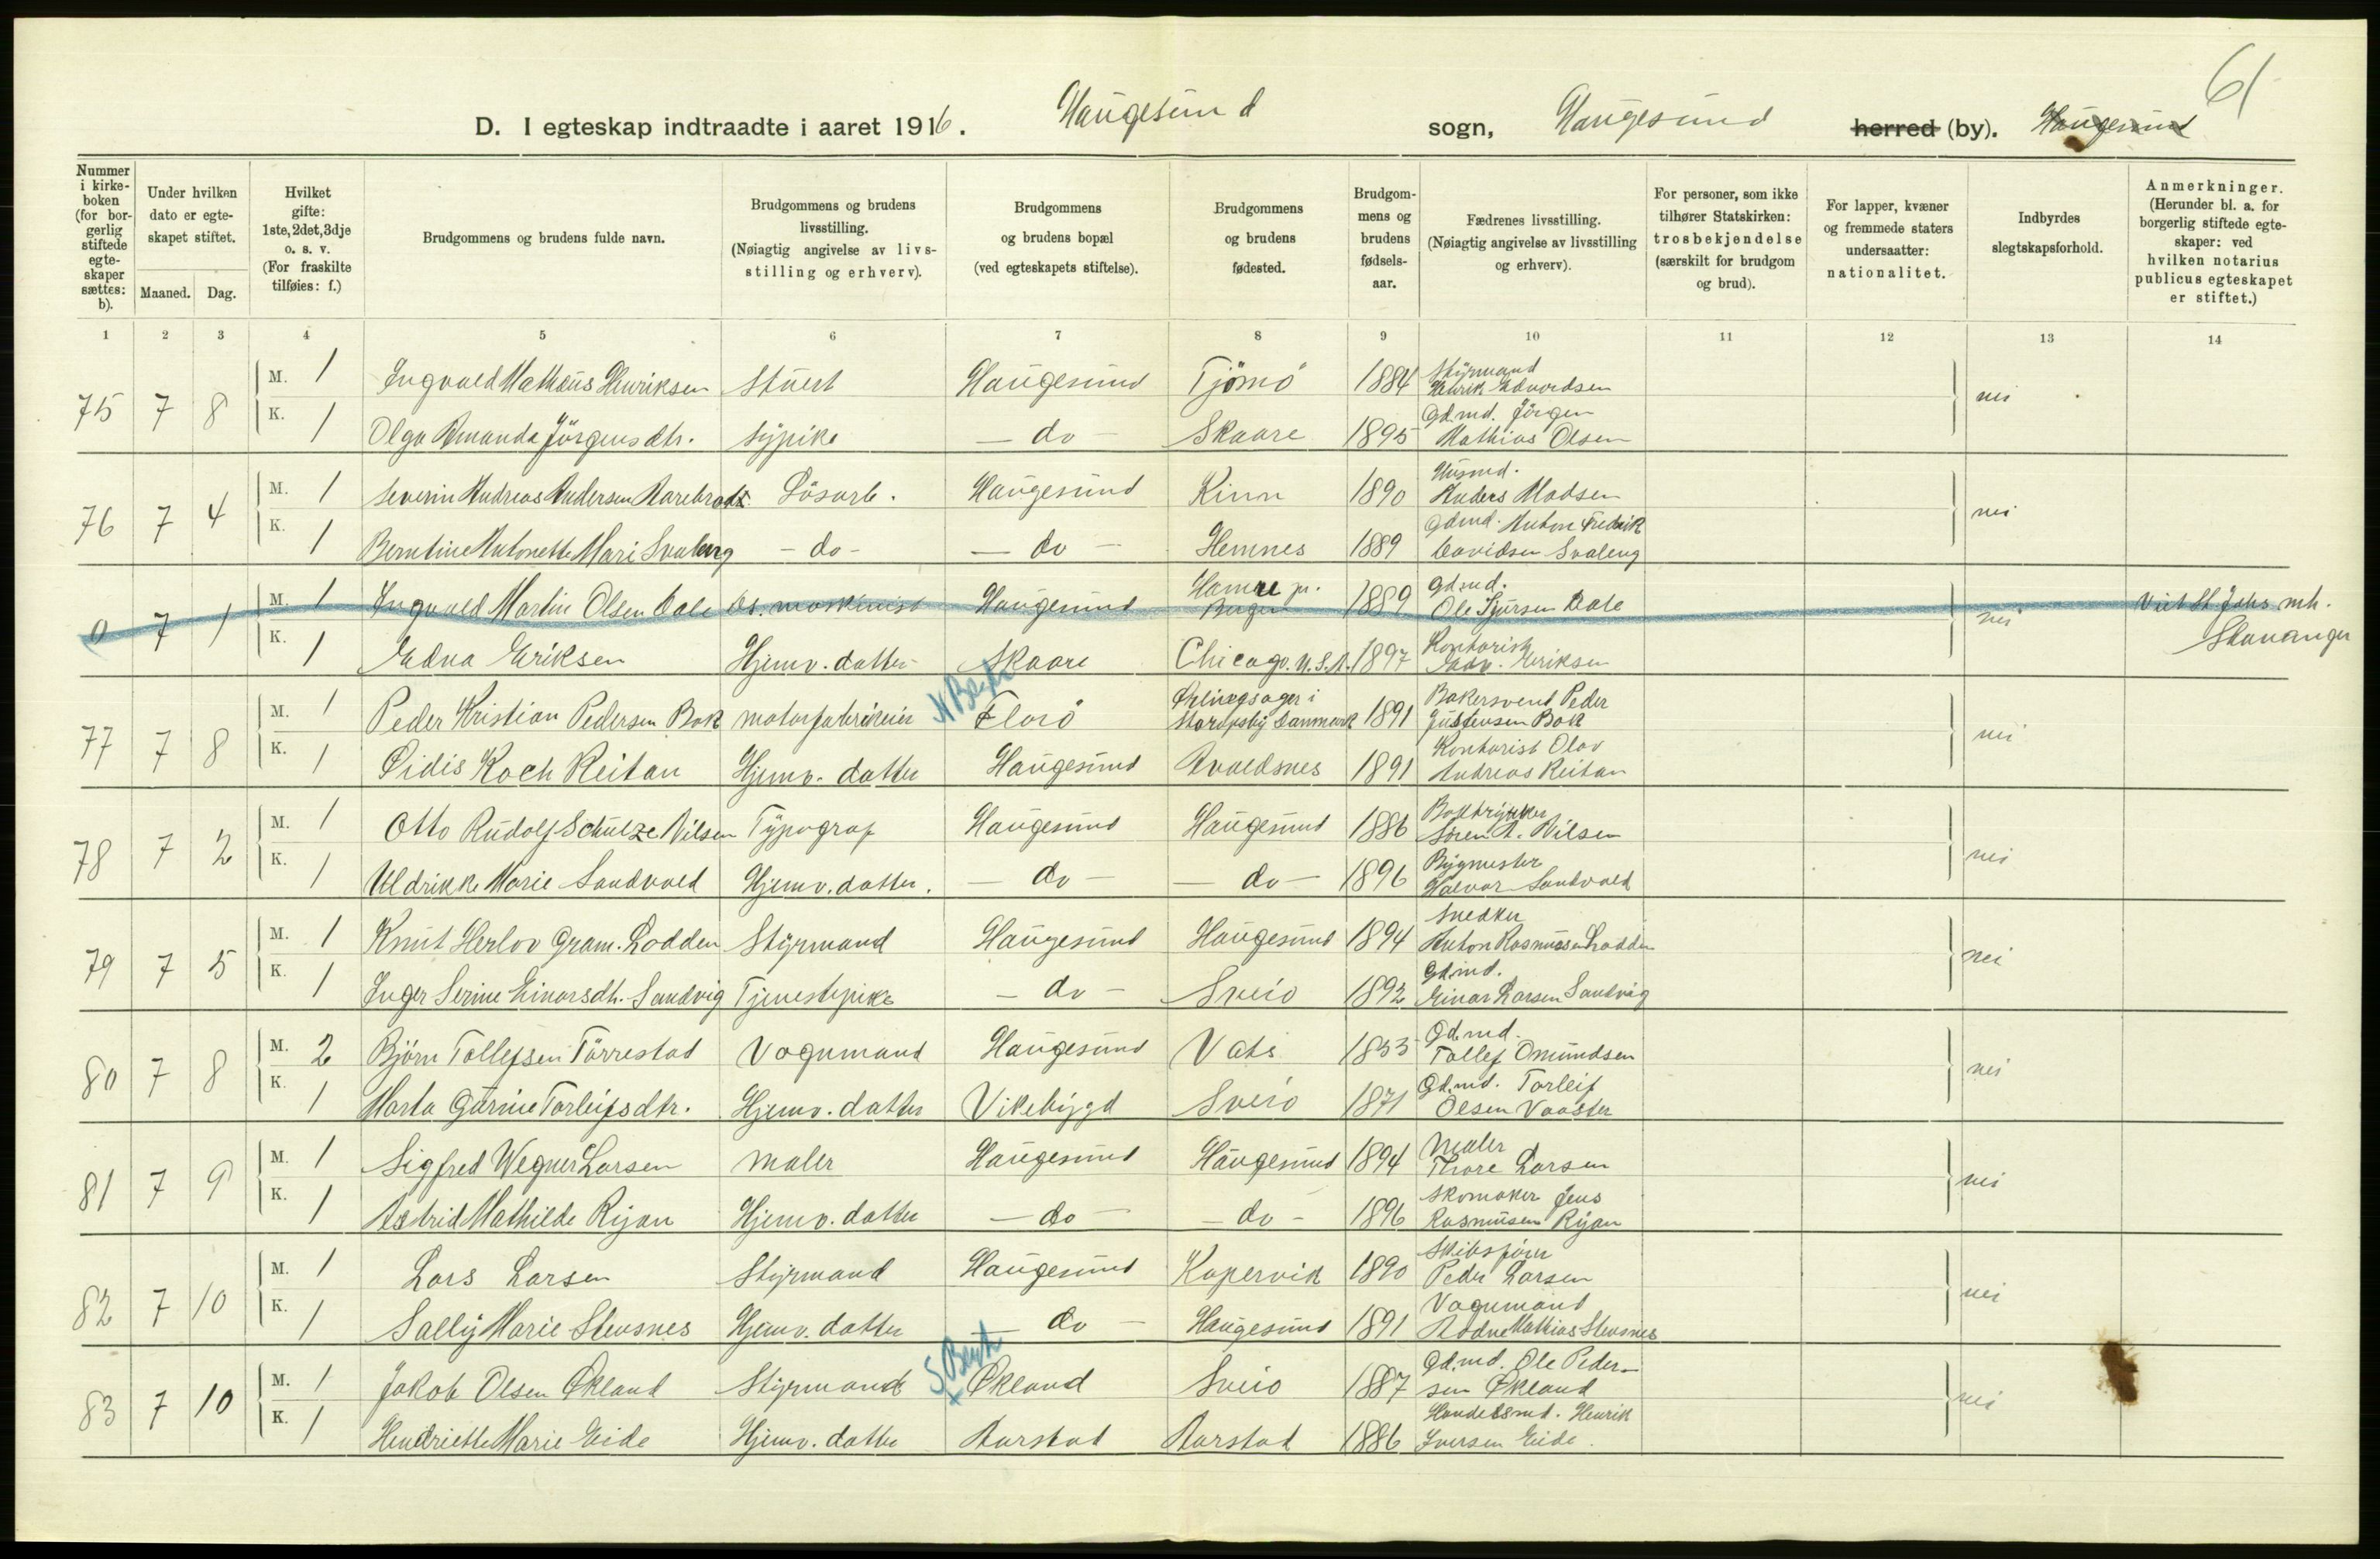 61
D. I egteskap indtraadte i aaret 1916. Haugesund sogn, Haugesund herred (by). Haugesund
Nummer i kirkeboken (for borgerlig stiftede egteskaper sættes: b).
Under hvilken dato er egteskapet stiftet.
Maaned. Dag.
Hvilket gifte: 1ste, 2det, 3dje o. s. v. (For fraskilte tilføies: f.)
Brudgommens og brudens fulde navn.
Brudgommens og brudens livsstilling. (Nøiagtig angivelse av livsstilling og erhverv).
Brudgommens og brudens bopæl (ved egteskapets stiftelse).
Brudgommens og brudens fødested.
Brudgommens og brudens fødselsaar.
Fædrenes livsstilling. (Nøiagtig angivelse av livsstilling og erhverv).
For personer, som ikke tilhører Statskirken: trosbekjendelse (særskilt for brudgom og brud).
For lapper, kvæner og fremmede staters undersaatter: nationalitet.
Indbyrdes slegtskapsforhold.
Anmerkninger. (Herunder bl. a. for borgerlig stiftede egteskaper: ved hvilken notarius publicus egteskapet er stiftet.)
1 2 3 4 5 6 7 8 9 10 11 12 13 14
75 7 8 M. 1 Ingvald Mathæus Henriksen Stuert Haugesund Tjömö 1884 Styrmand Henrik Edvardsen nei
K. 1 Olga Amanda Jörgensdtr. Sypike - do - Skaare 1895 Gdmd. Jörgen Mathias Olsen
76 7 4 M. 1 Severin Andreas Andersen Aarebrodt Lösarb. Haugesund Kinn 1890 Husmd. Anders Madsen nei
K. 1 Berntine Antonette Mari Svaleng - do - - do - Hemnes 1889 Gdmd. Anton Fredrik Davidsen Svaleng
0 7 1 M. 1 Ingvald Martin Olsen Dale Ds. maskinist Haugesund Hamre pr. Bergen 1889 Gdmd. Ole Sjursen Dale nei Viet St. Johs mh. Stavanger
K. 1 Edna Eriksen Hjemv. datter Skaare Chicago. U.S.A. 1897 Kontorist Eriksen
77 7 8 M. 1 Peder Kristian Pedersen Bak motorfabrikeier Florö Danmark 1891 Bakersvend Peder Justensen Bak nei
K. 1 Öidis Koch Reitan Hjemv. datter Haugesund Avaldsnes 1891 Kontorist Olav Andreas Reitan
78 7 2 M. 1 Otto Rudolf Schulze Nilsen Typograf Haugesund Haugesund 1886 Boktrykker Sören A. Nilsen nei
K. 1 Uldrikke Marie Sandvold Hjemv. datter. - do - - do - 1896 Bygmester Halvor Sandvold
79 7 5 M. 1 Knut Herlov Gram. Lodden Styrmand Haugesund Haugesund 1894 Snedker Anton Rasmussen Lodden nei
K. 1 Inger Serine Einarsdtr. Sandvig Tjenestepike - do - Sveio 1892 Gdmd. Einar Larsen Sandvig
80 7 8 M. 2 Björn Tollefsen Törrestad Vognmand Haugesund Vats 1853 Gdmd. Tollef Omundsen nei
K. 1 Marta Gurine Torleifsdtr. Hjemv. datter Vikebygd Sveio 1871 Gdmd. Torleif Olsen Vaaster
81 7 9 M. 1 Sigfred Wegner Larsen maler Haugesund Haugesund 1894 Maler Thore Larsen nei
K. 1 Astrid Mathilde Rijan Hjemv. datter - do - - do - 1896 Skomaker Jens Rasmusen Rijan
82 7 10 M. 1 Lars Larsen Styrmand Haugesund Kopervik 1890 Skibsförer Peder Larsen nei
K. 1 Sally Marie Stensnes Hjemv. datter - do - Haugesund 1891 Vognmand Rodne Mathias Stensnes
83 7 10 M. 1 Jakob Olsen Økland Styrmand Økland Sveio 1887 Gd.md. Ole Pedersen Økland nei
K. 1 Hendriette Marie Eide Hjemv. datter Aarstad Aarstad 1886 Handelsmd. Henrik Iversen Eide.